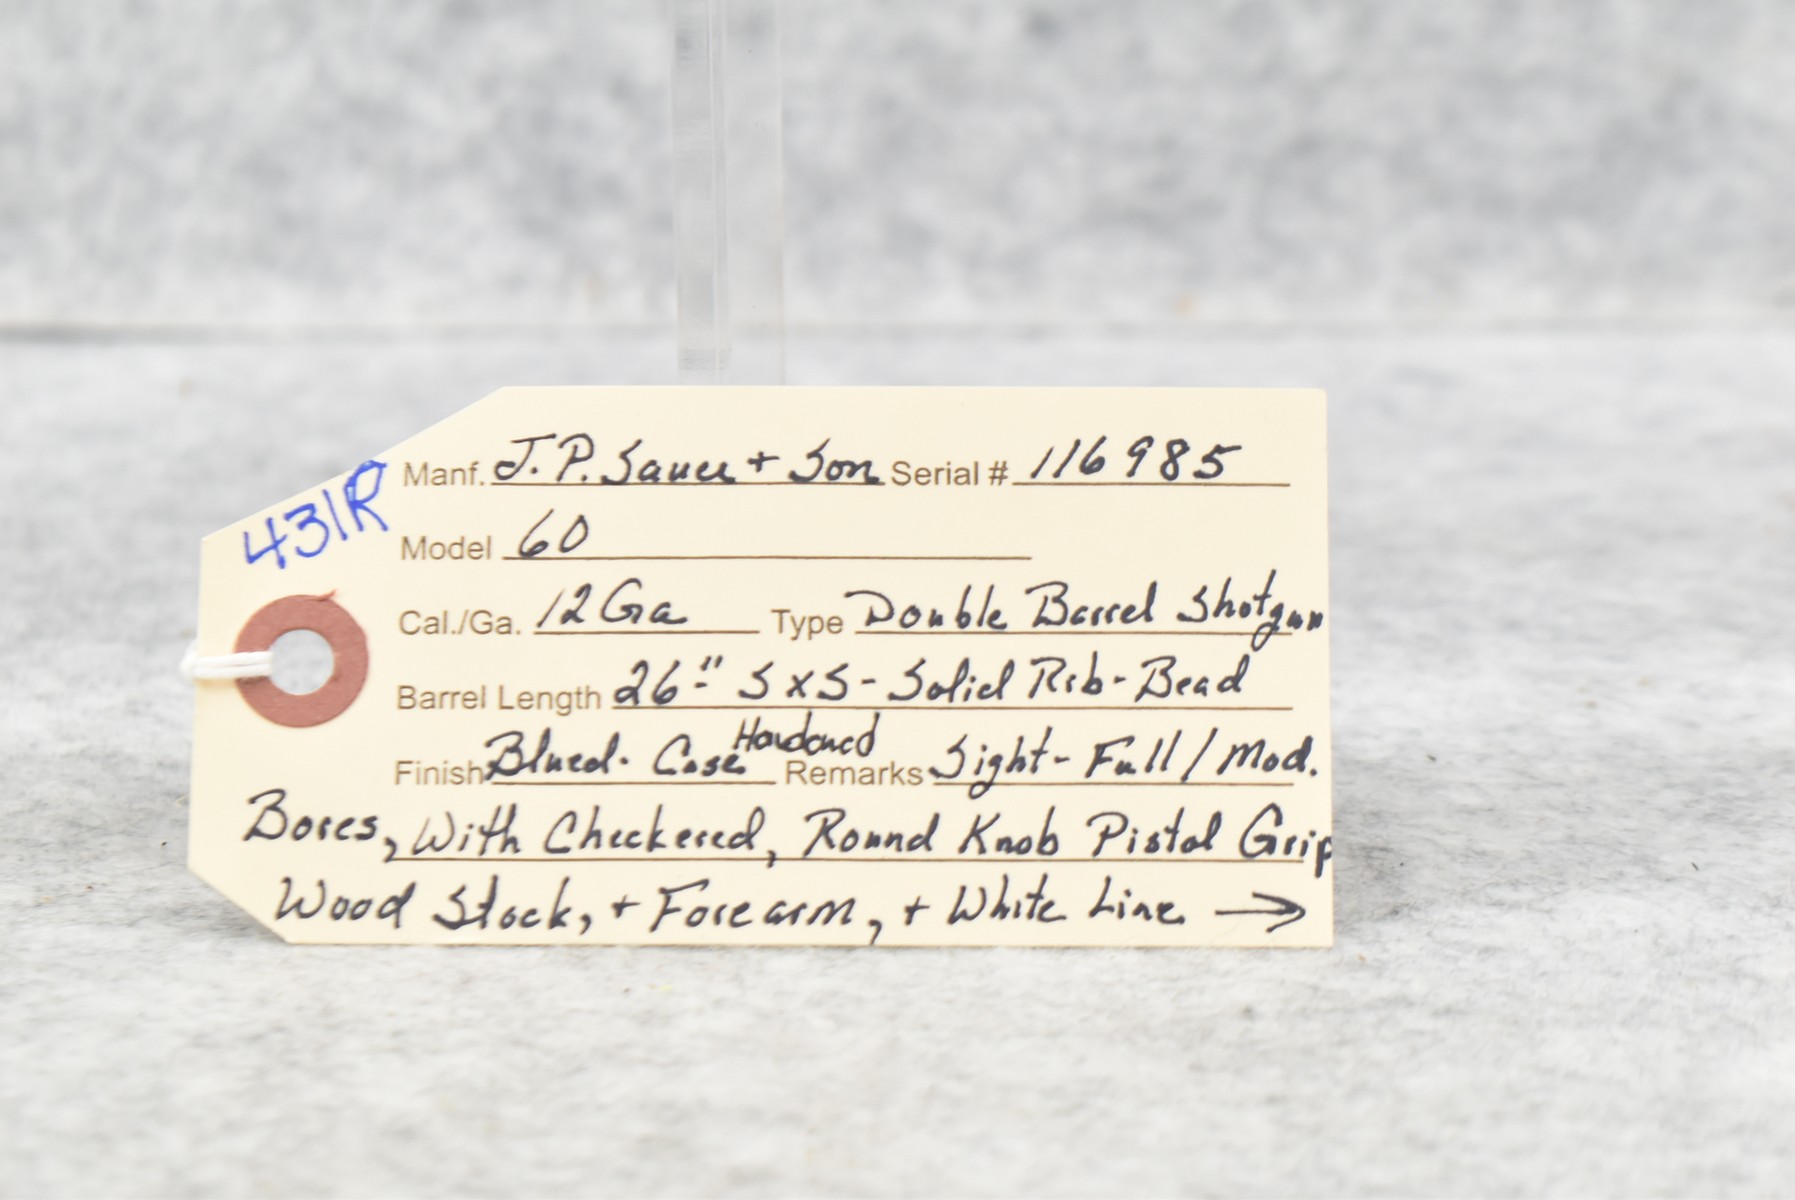 431R
Manf. J.P. Sauer + Son Serial # 116985
Model 60
Cal./Ga. 12 Ga Type Double Barrel Shotgun
Barrel Length 26" SxS - Solid Rib - Bead
Finish Blued. Case Hardened Remarks Sight - Full / Mod.
Bores, With Checkered, Round Knob Pistol Grip
Wood Stock, + Forearm, + White Line →